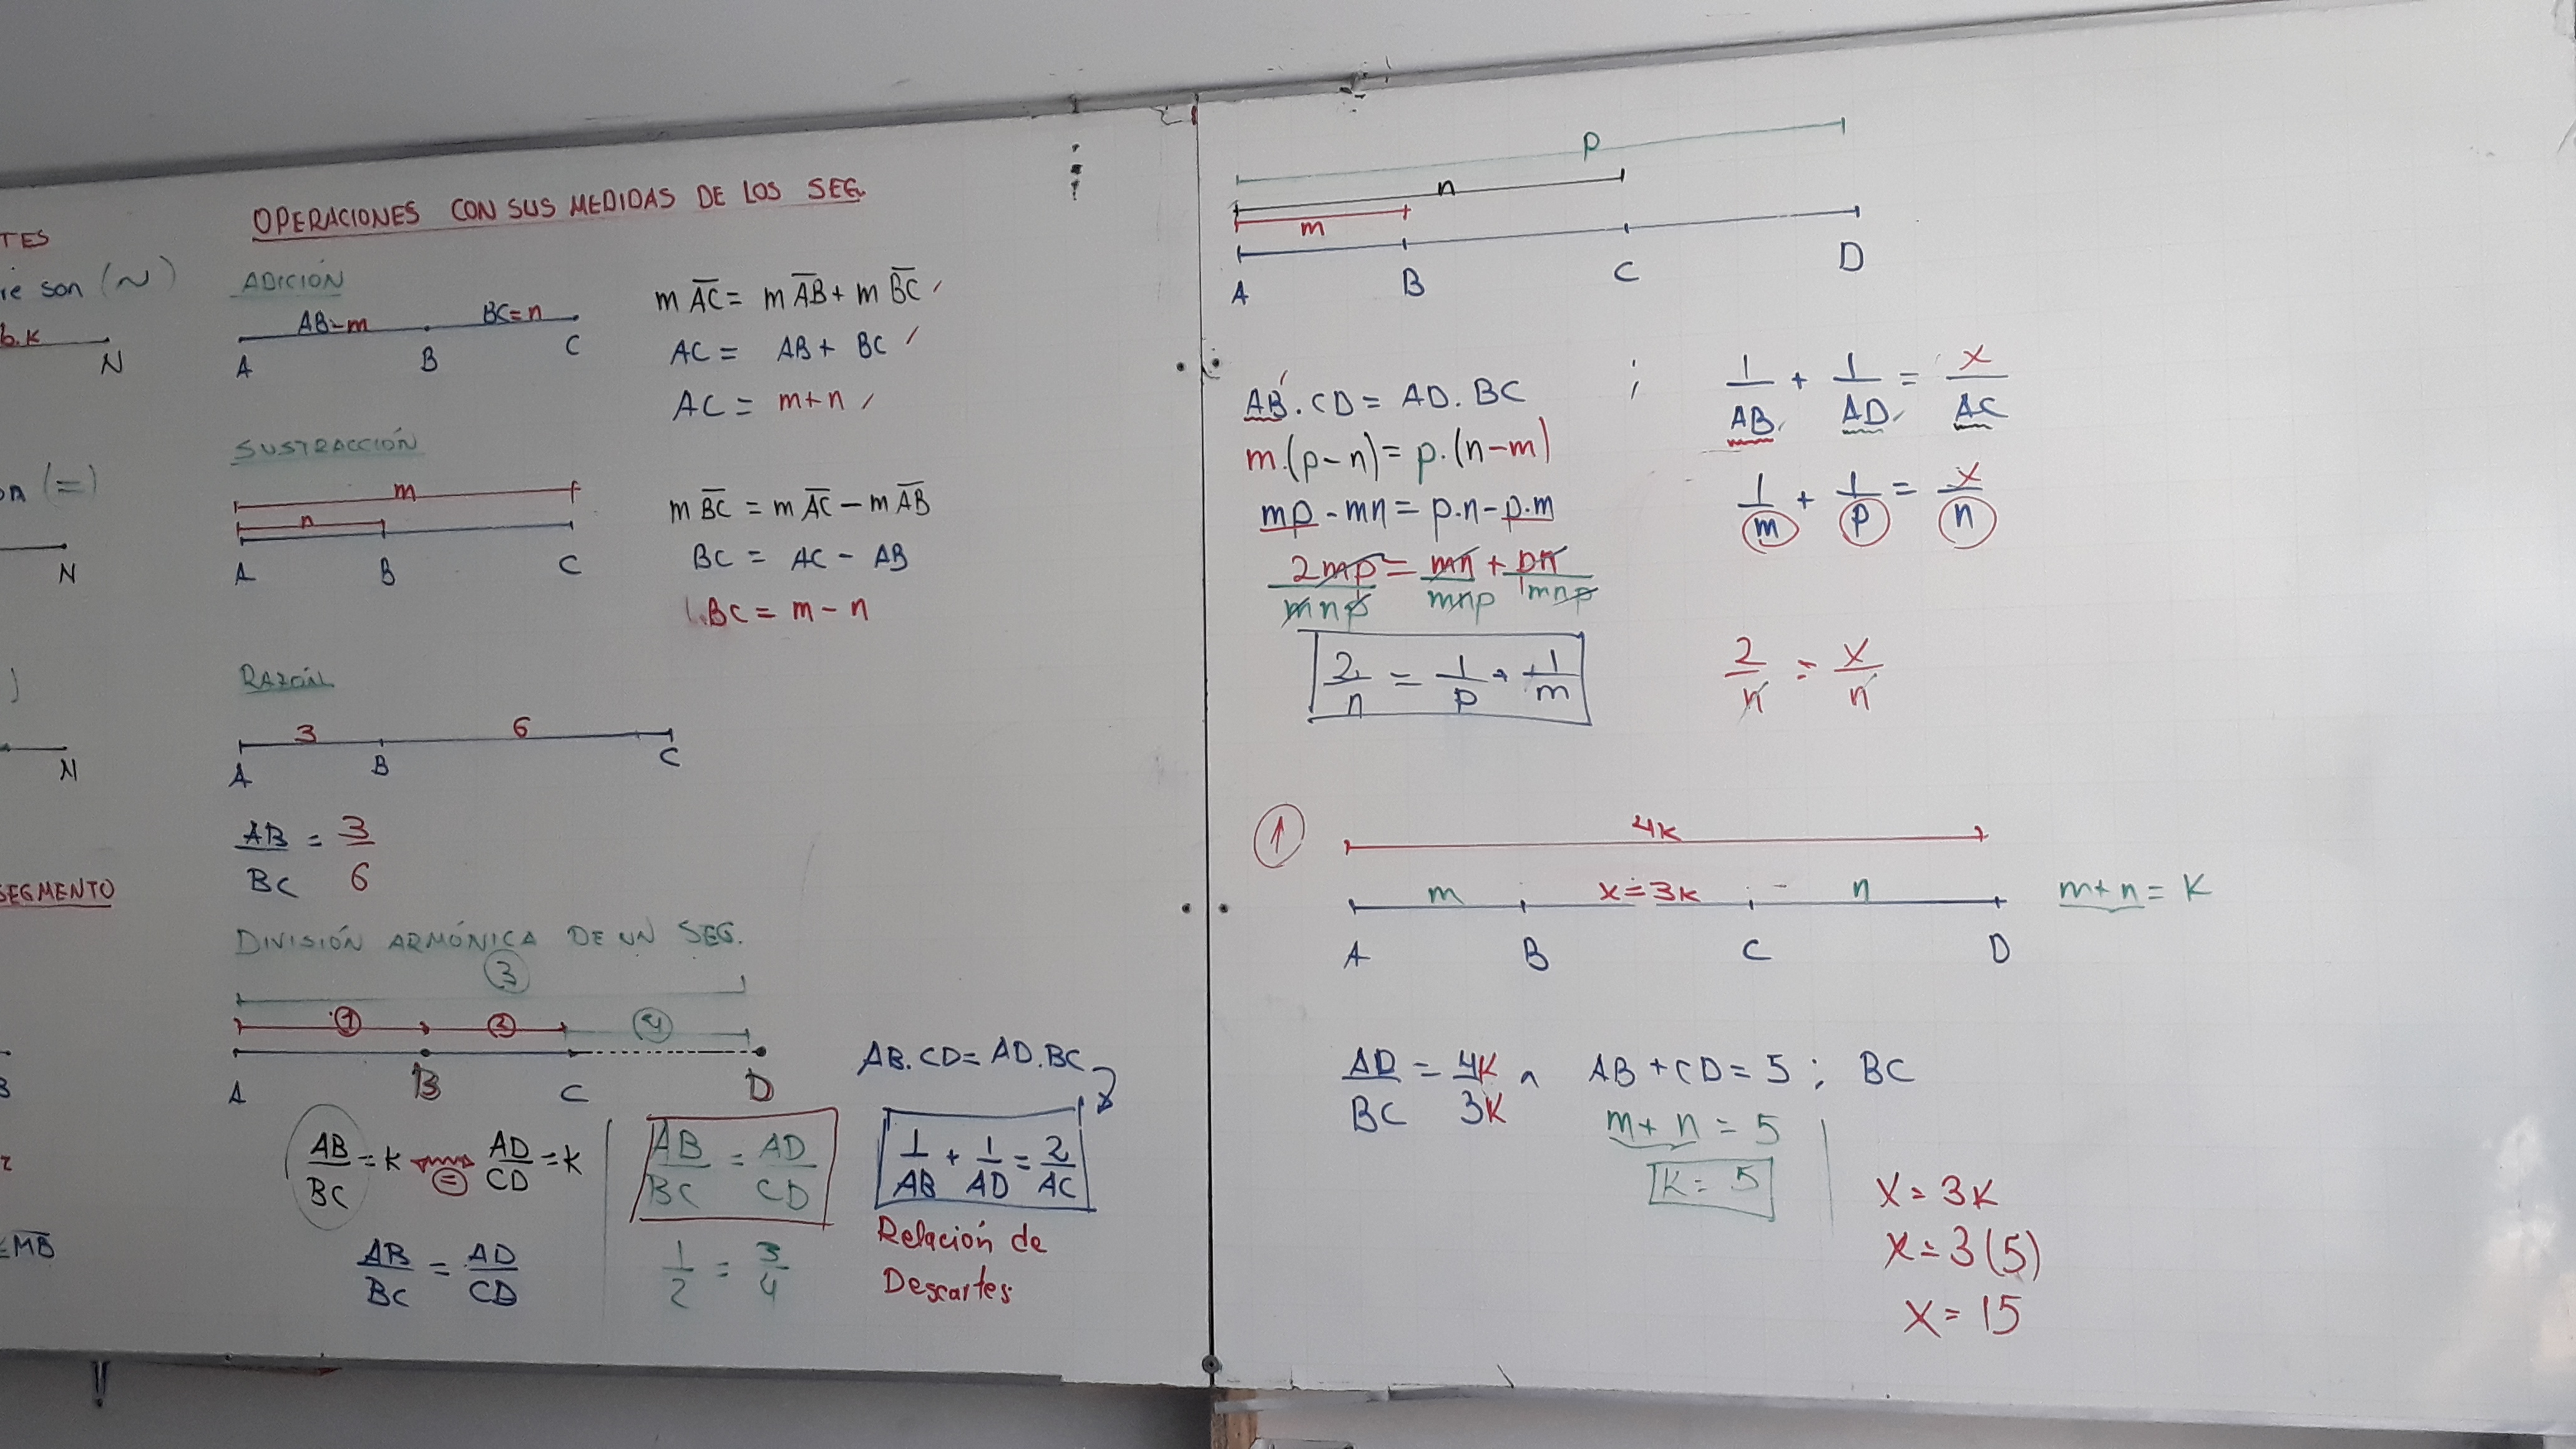 TES
ie son (~)
b.k
N
on (=)
N
)
N
SEGMENTO
=MB̅
OPERACIONES CON SUS MEDIDAS DE LOS SEG.
ADICIÓN
AB=m BC=n
A B C
m A̅C̅ = m A̅B̅ + m B̅C̅
AC = AB + BC
AC = m+n
SUSTRACCIÓN
m
n
A B C
m B̅C̅ = m A̅C̅ - m A̅B̅
BC = AC - AB
BC = m - n
RAZÓN
3 6
A B C
AB/BC = 3/6
DIVISIÓN ARMÓNICA DE UN SEG.
3
1 2 4
A B C D
AB/BC = K = AD/CD = K
AB/BC = AD/CD
AB/BC = AD/CD
1/2 = 3/4
AB.CD = AD.BC
1/AB + 1/AD = 2/AC
Relación de
Descartes
p
n
m
A B C D
AB.CD = AD.BC ; 1/AB + 1/AD = x/AC
m.(p-n) = p.(n-m)
1/m + 1/p = x/n
mp - mn = p.n - p.m
2mp/mnp = mn/mnp + pn/mnp
2/n = 1/p + 1/m
2/n = x/n
1
4k
m x=3k n
m+n = K
A B C D
AD/BC = 4K/3K ∧ AB + CD = 5 ; BC
m+n = 5
K = 5
X = 3K
x = 3(5)
X = 15